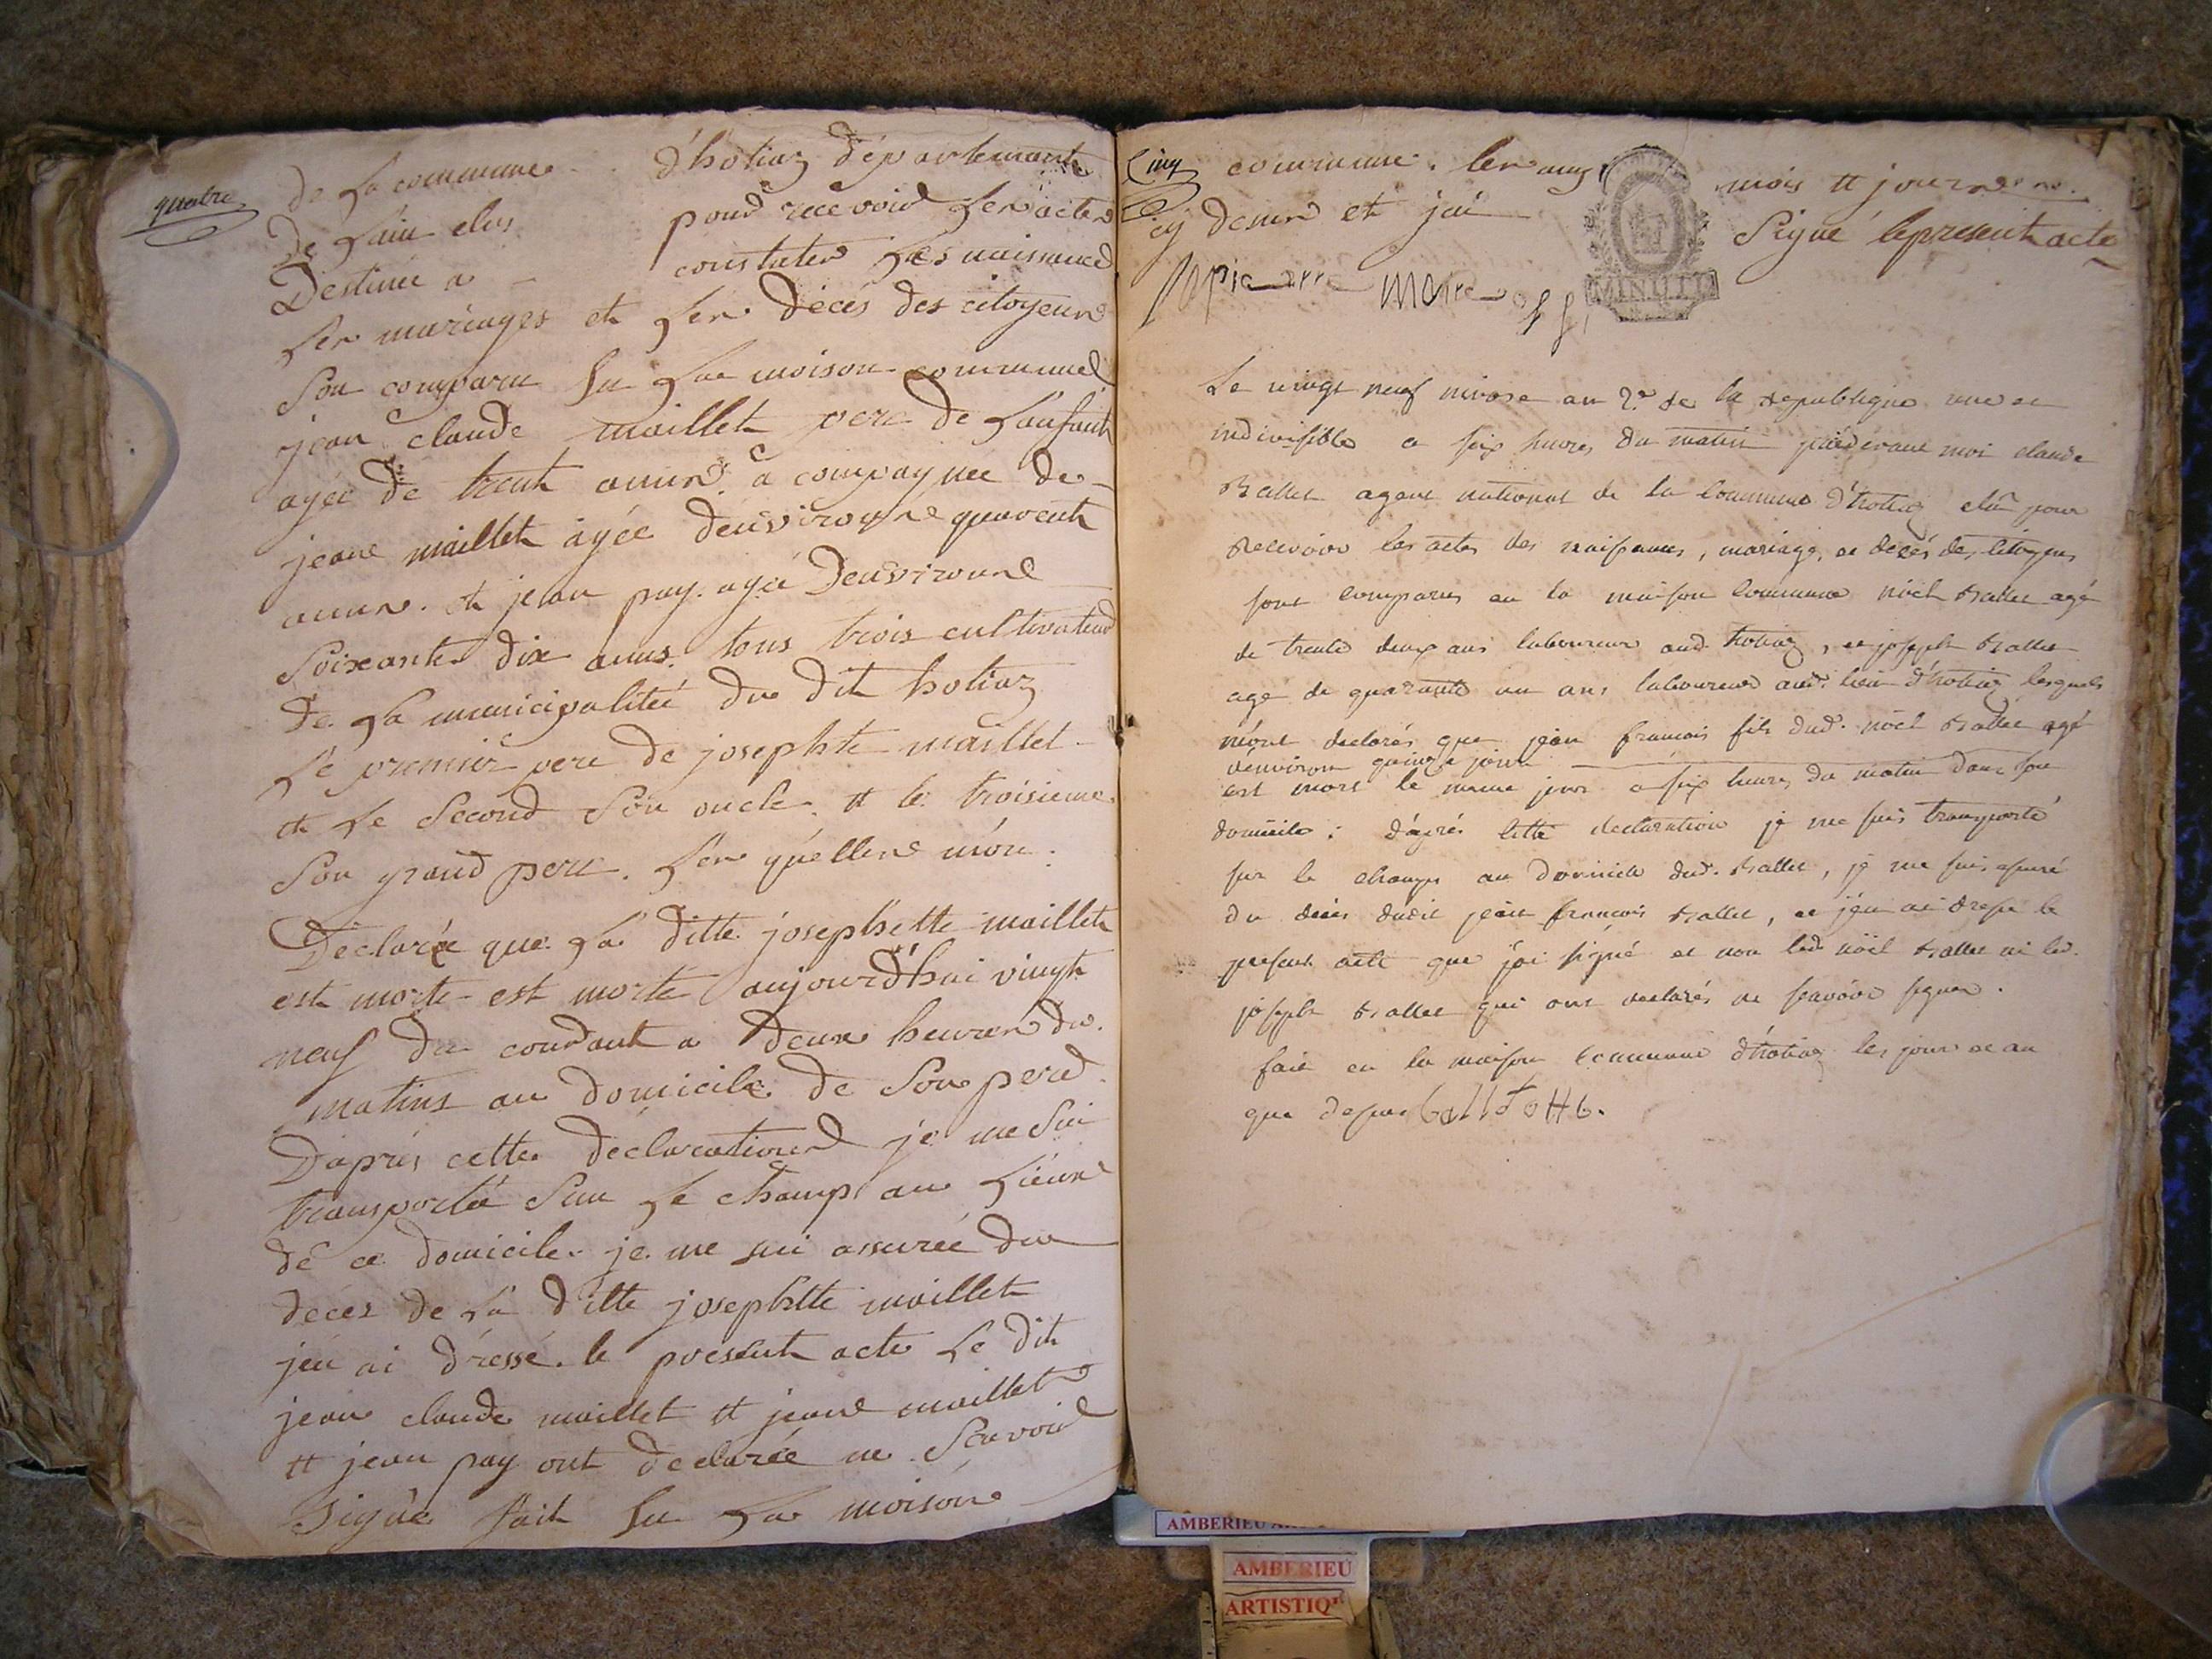 quatre
de la commune d'hotiaz département
de l'ain elus pour recevoir les actes
Destinée a constater les naissance
les mariages et les décés des citoyens
Son comparu su la moison commune
jean claude maillet pere de l'enfant
agée de trent anns acompagnée de
jeane maillet agée d'environne quarente
anns et jean pay agée denvironne
Soixante dix anns tous trois cultivateur
de la municipalitéé du dit hotiaz
le premier pere de josephte maillet
et le Second Son oncle et le troisieme
Son grand pere les quelle mon
Déclarée que la ditte josephette maillet
est morte est morte aujourd'hui vingt
neuf du courdant a deux heures du
matins au domicile de Son pere
D'apres cette declaration je me Sui
transportée Sur le champ au lieux
de ce domicile je me sui assurée du
deces de la ditte josephtte maillet
jen ai dressé le present acte le dit
jean claude maillet et jeane maillet
et jean pay ont declarée ne Scavoir
Signée fait Su la moisone
Cinq
commune les ans mois et jour
cy desur et jai Signé lepresent acte
MINUTE
pierre maire
Le vingt neuf nivose an 2e de la republique une et
indivisible a six heures du matin pardevant moi claude
Ballet agent national de la Commune d'hotiaz elû pour
Recevoir les actes des naissances, mariage, et décés des Citoyens
sont comparus en la maison Commune noël Ballet agé
de trente deux ans laboureur aud. hotiaz, et joseph Ballet
agé de quarante un ans laboureur aud. lieu d'hotiaz lesquels
m'ont declarés que jean francois fils dud. noël Ballet agé
d'environ quinze jours
est mort le meme jour a six heures du matin dans son
domicile; d'aprés cette declaration je me suis transporté
sur le champs au Domicile dud. Ballet, je me suis assuré
du décés dudit jean francois Ballet, et j'en ai dressé le
present acte que j'ai signé et non led. noël Ballet ni led.
joseph Ballet qui ont declarés ne scavoir signer.
fait en la maison commune d'hotiaz les jour et an
que dessus
AMBERIEU
AMBERIEU
ARTISTIQ